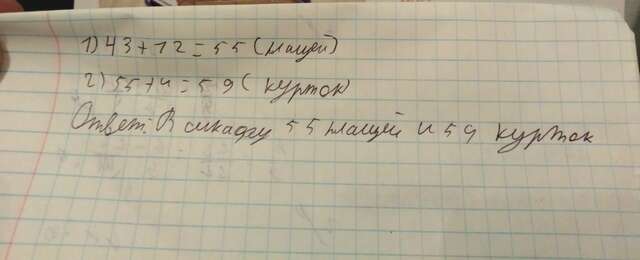 1) 43+12=55 (плащей)
2) 55+4=59 (курток)
Ответ: В шкафу 55 плащей и 59 курток